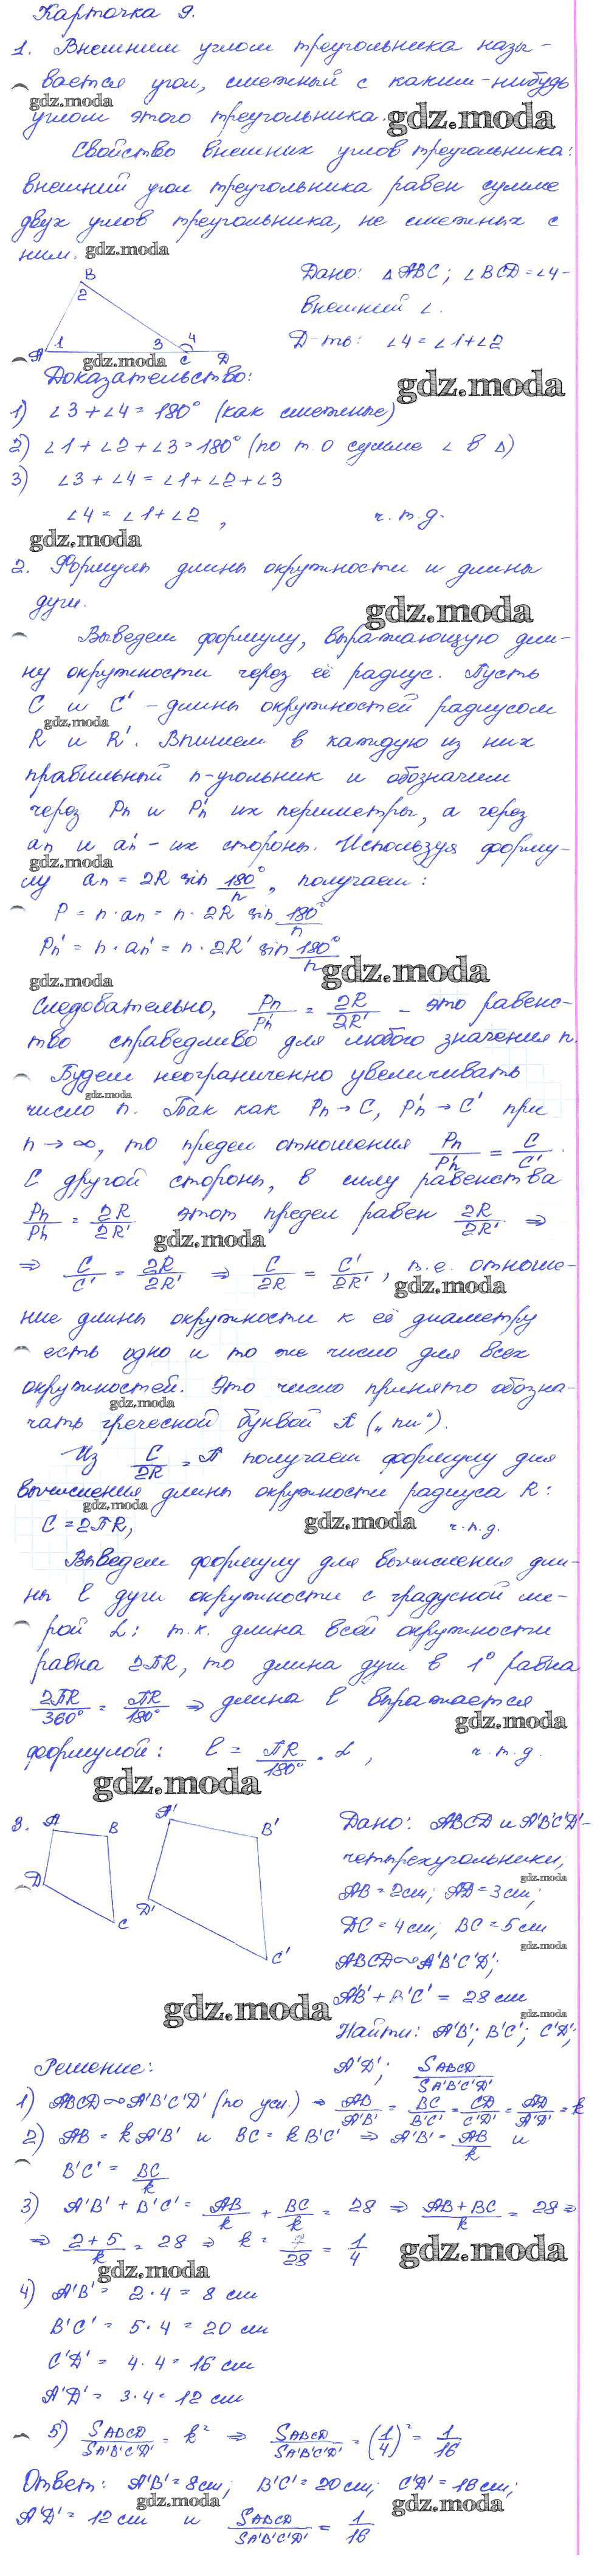 Карточка 9.
1. Внешним углом треугольника назы-
вается угол, смежный с каким-нибудь
gdz.moda
углом этого треугольника. gdz.moda
Свойство внешних углов треугольника:
внешний угол треугольника равен сумме
двух углов треугольника, не смежных с
ним. gdz.moda
B
2
A 1 3 4 C D
gdz.moda
Дано: △ABC; ∠BCD=∠4-
внешний ∠.
Д-ть: ∠4=∠1+∠2
Доказательство: gdz.moda
1) ∠3+∠4=180° (как смежные)
2) ∠1+∠2+∠3=180° (по т. о сумме ∠ в △)
3) ∠3+∠4=∠1+∠2+∠3
∠4=∠1+∠2, ч.т.д.
gdz.moda
2. Формулы длины окружности и длины
дуги. gdz.moda
Выведем формулу, выражающую дли-
ну окружности через её радиус. Пусть
C и C' - длины окружностей радиусом
gdz.moda
R и R'. Впишем в каждую из них
правильный n-угольник и обозначим
через Pn и Pn' их периметры, а через
an и an' - их стороны. Используя форму-
gdz.moda
лу an = 2R sin 180°/n, получаем:
P = n·an = n·2R sin 180°/n
Pn' = n·an' = n·2R' sin 180°/n
gdz.moda gdz.moda
Следовательно, Pn/Pn' = 2R/2R' - это равенс-
тво справедливо для любого значения n.
Будем неограниченно увеличивать
gdz.moda
число n. Так как Pn→C, Pn'→C' при
n→∞, то предел отношения Pn/Pn' = C/C'.
С другой стороны, в силу равенства
Pn/Pn' = 2R/2R' этот предел равен 2R/2R' ⇒
gdz.moda
⇒ C/C' = 2R/2R' ⇒ C/2R = C'/2R', т.е. отноше-
gdz.moda
ние длины окружности к её диаметру
есть одно и то же число для всех
окружностей. Это число принято обозна-
gdz.moda
чать греческой буквой π („пи“).
Из C/2R = π получаем формулу для
вычисления длины окружности радиуса R:
gdz.moda
C=2πR, gdz.moda ч.т.д.
Выведем формулу для вычисления дли-
ны l дуги окружности с градусной ме-
рой α: т.к. длина всей окружности
равна 2πR, то длина дуги в 1° равна
2πR/360° = πR/180° ⇒ длина l выражается
gdz.moda
формулой: l = πR/180° · α, ч.т.д.
gdz.moda
3. A B C D A' B' C' D'
Дано: ABCD и A'B'C'D'-
четырехугольники;
gdz.moda
AB=2см; AD=3см;
DC=4см; BC=5см
gdz.moda
ABCD∾A'B'C'D';
A'B'+B'C' = 28см
gdz.moda gdz.moda
Найти: A'B'; B'C'; C'D';
A'D'; SABCD/SA'B'C'D'
Решение:
1) ABCD∾A'B'C'D' (по усл.) ⇒ AB/A'B' = BC/B'C' = CD/C'D' = AD/A'D' = k
2) AB = kA'B' и BC = kB'C' ⇒ A'B' = AB/k и
B'C' = BC/k
3) A'B' + B'C' = AB/k + BC/k = 28 ⇒ AB+BC/k = 28 ⇒
⇒ 2+5/k = 28 ⇒ k = 7/28 = 1/4 gdz.moda
gdz.moda
4) A'B' = 2·4 = 8 см
B'C' = 5·4 = 20 см
C'D' = 4·4 = 16 см
A'D' = 3·4 = 12 см
5) SABCD/SA'B'C'D' = k² ⇒ SABCD/SA'B'C'D' = (1/4)² = 1/16
Ответ: A'B'=8см; B'C'=20см; C'D'=16см;
gdz.moda gdz.moda
A'D'=12см и SABCD/SA'B'C'D' = 1/16